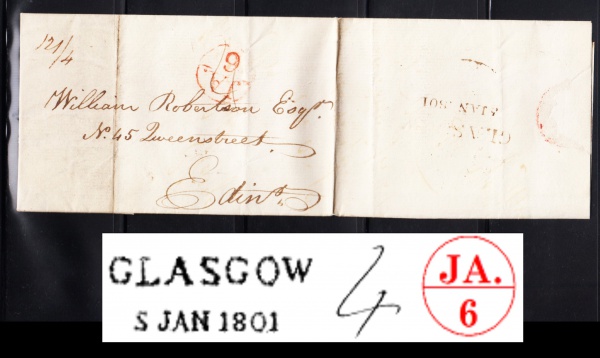 121/4
William Robertson Esqr.
No. 45 Queenstreet
Edinr.
5 JAN 1801
GLAS
GLASGOW
5 JAN 1801
4
JA.
6